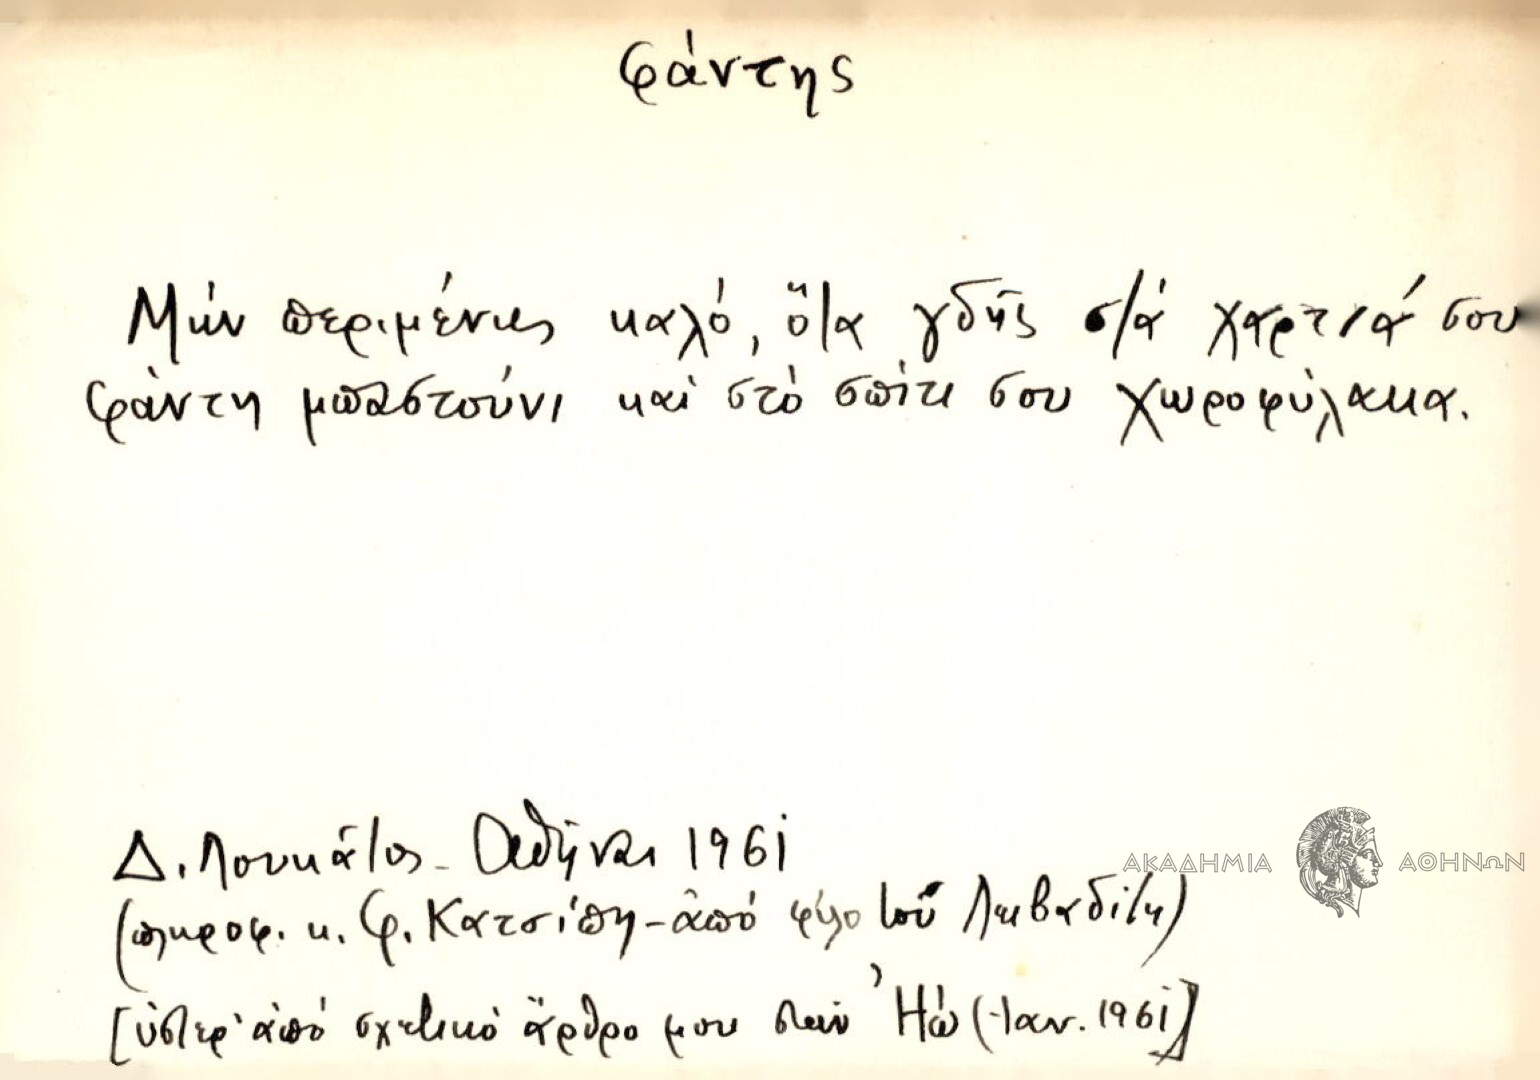 φάντης
Μὴν περιμένεις καλό, ὅτα γδῆς στὰ χαρτιά σου
φάντη μπαστούνι καὶ στὸ σπίτι σου χωροφύλακα.
Δ. Λουκᾶτος - Ἀθῆναι 1961
(πληροφ. κ. Φ. Κατσίπη - ἀπὸ φίλο τοῦ Λειβαδίτη)
[ὑστερ' ἀπὸ σχετικὸ ἄρθρο μου στὴν Ἠώ (Ἰαν. 1961]
ΑΚΑΔΗΜΙΑ ΑΘΗΝΩΝ